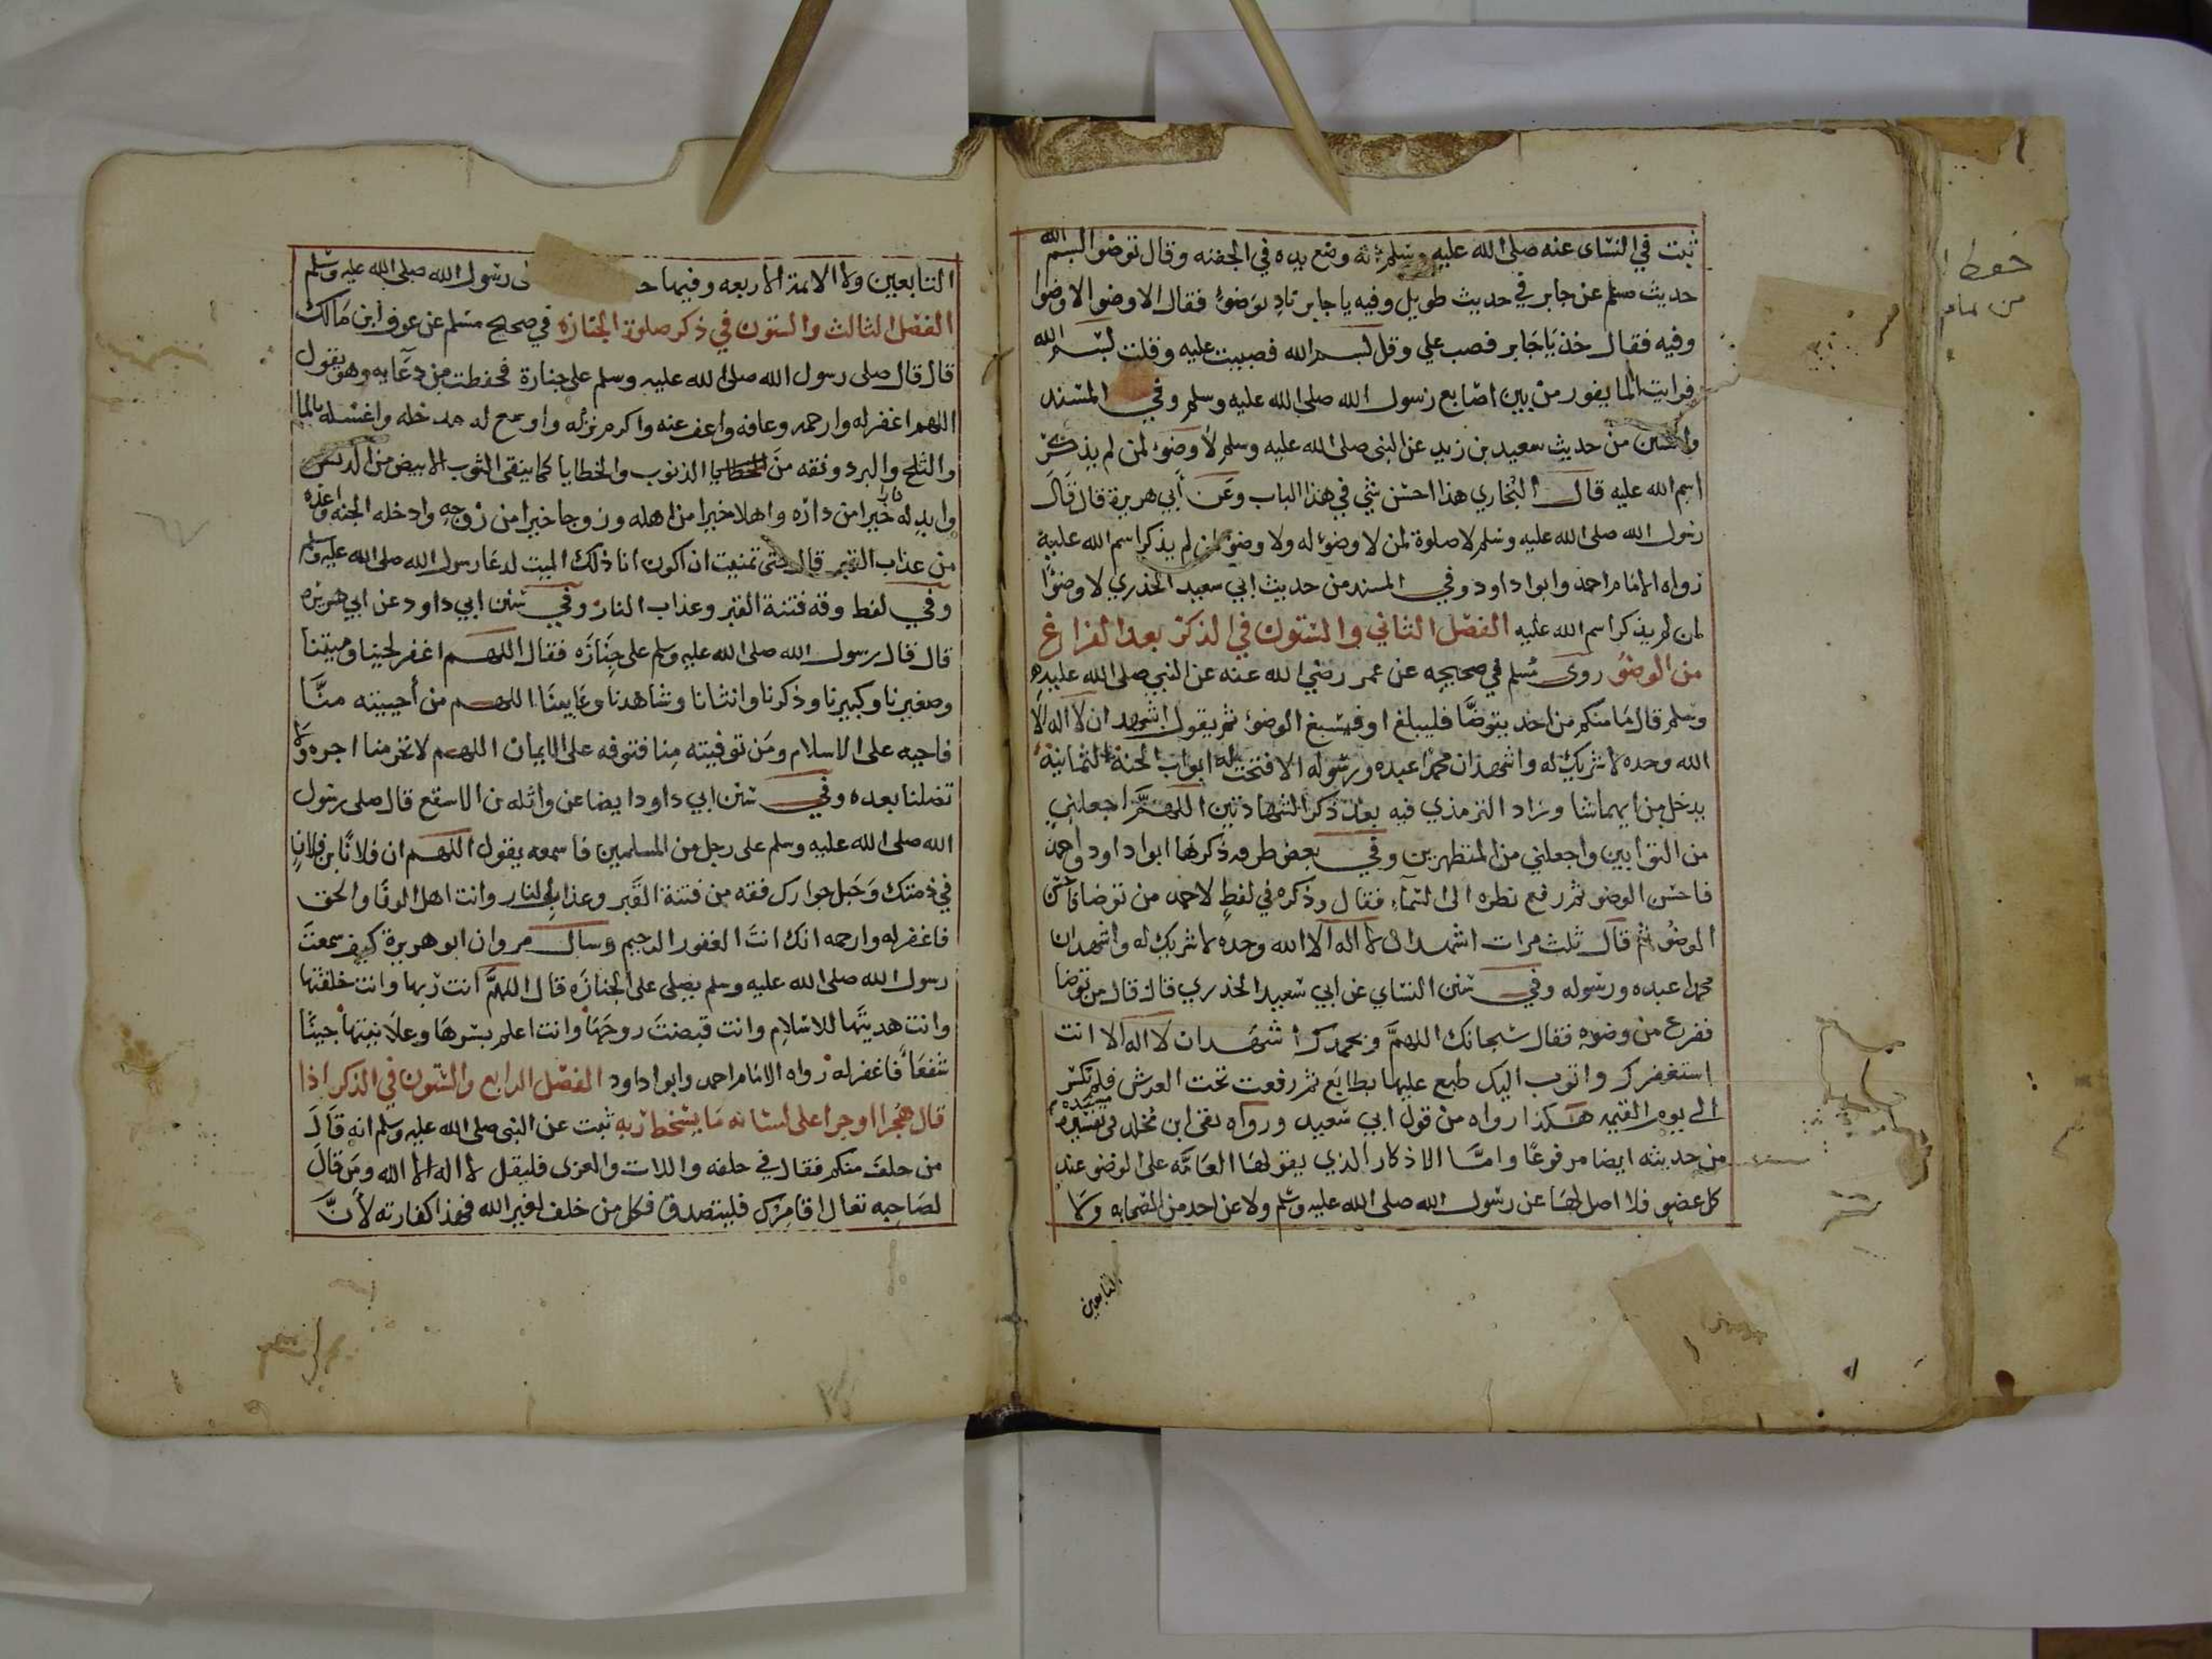 ثبت في النساى عنه صلى الله عليه وسلم انه وضع يده في الجفنه وقال توضوا بسم الله
حديث مسلم عن جابر في حديث طويل وفيه يا جابر ناد بوضوء فقال الا وضوا الا وضوا
وفيه فقال خذ يا جابر فصب علي وقل بسم الله فصببت عليه وقلت بسم الله
فرايت الما يفور من بين اصابع رسول الله صلى الله عليه وسلم وفي المسند
والسنن من حديث سعيد بن زيد عن النبى صلى الله عليه وسلم لا وضوء لمن لم يذكر
اسم الله عليه قال البخاري هذا احسن شي في هذا الباب وعن أبي هريرة قال قال
رسول الله صلى الله عليه وسلم لا صلوة لمن لا وضوء له ولا وضوء لمن لم يذكر اسم الله عليه
رواه الامام احمد وابوا داود وفي المسند من حديث ابي سعيد الخذري لا وضوءا
لمن لم يذكر اسم الله عليه الفصل الثاني والستون في الذكر بعد الفراغ
من الوضوء روى مسلم في صحيحه عن عمر رضي الله عنه عن النبي صلى الله عليه
وسلم قال ما منكم من احد يتوضّا فليبلغ او فيسبغ الوضوء ثم يقول اشهد ان لا اله الا
الله وحده لا شريك له واشهد ان محمدا عبده ورسوله الا فتحت له ابواب الجنة الثمانية
يدخل من ايهما شا وزاد الترمذي فيه بعد ذكر الشهادتين اللهمَّ اجعلني
من التوابين واجعلني من المتطهرين وفي بعض طرقه ذكرها ابوا داود واحمد
فاحسن الوضو ثم رفع نظره الى السماء فقال وذكره في لفظٍ لاحمد من توضا فاحسن
الوضوُ ثم قال ثلث مرات اشهد ان لا اله الا الله وحده لا شريك له واشهد ان
محمدا عبده ورسوله وفي سنن النساي عن ابي سعيد الخذري قال قال من توضا
ففرغ من وضوءه فقال سبحانك اللهمَّ وبحمدك اشهد ان لا اله الا انت
استغفرك واتوب اليك طبع عليها بطابَع ثم رفعت تحت العرش فلم تكسر
الى يوم القيمه هكذا رواه من قول ابي سعيد ورواه بقى ابن مخلد في تفسيره
من حديثه ايضا مرفوعًا وامَّا الاذكار الذي يقولها العامَّه على الوضو عند
كل عضو فلا اصل لها عن رسول الله صلى الله عليه وسلم ولا عن احد من الصحابه ولا
التابعين
التابعين ولا الايمة الاربعه وفيها حـ لى رسول الله صلى الله عليه وسلم
الفصل الثالث والستون في ذكر صلوة الجنازه في صحيح مسلم عن عوف ابن مالك
قال قال صلى رسول الله صلى الله عليه وسلم على جنازة فحفطت من دعآيه وهو يقول
اللهم اغفر له وارحمه وعافه واعف عنه واكرم نزله واوسع له مدخله واغسله بالما
والثلج والبرد ونقه من الذنوب والخطايا كما ينقى الثوب الابيض من الدنس
وابدله دارا خيرا من داره واهلا خيرا من اهله وزوجا خيرا من زوجه وادخله الجنه واعذه
من عذاب القبر قال حتى تمنيت ان اكون انا ذلك الميت لدعا رسول الله صلى الله عليه وسلم
وفي لفط وقه فتنة القبر وعذاب النار وفي سنن ابي داود عن ابي هريره
قال قال رسول الله صلى الله عليه وسلم على جِنَازَه فقال اللهم اغفر لحينا وميتنا
وصغيرنا وكبيرنا وذكرنا وانثانا وشاهدنا وغايبنا اللهم من أحييته منَّا
فاحيه على الاسلام ومَن توفيته مِنا فتوفه على الايمان اللهم لا تحرمنا اجره ولا
تضلنا بعده وفي سنن ابي داود ايضا عن واثله بن الاسقع قال صلى رسول
الله صلى الله عليه وسلم على رجل من المسلمين فاسمعه يقول اللهم ان فلانًا بن فلانٍ
في ذمتك وَحَبل جوارك فقه من فتنة القَبر وعذاب النار وانت اهل الوفا والحق
فاغفر له وارحمه انك انتَ الغفور الرحيم وسال مروان ابو هريرة كيف سمعتَ
رسول الله صلى الله عليه وسلم يصلى على الجنازَه قال اللهمَّ أنت ربها وانت خلقتها
وانت هديتَها للاسلامِ وانت قبضتَ روحَها وانت اعلم بسرهَا وعلانيتها جينًا
شفعَاً فاغفر له رواه الامام احمد وابوا داود الفصل الرابع والستون في الذكر اذا
قال هُجرا او جرا على لسانه ما يسخط ربه ثبت عن النبى صلى الله عليه وسلم انه قَالَ
من حلف منكم فقال في حلفه واللات والعزى فليقل لا اله الا الله ومَن قالَ
لصَاحِبه تعال اقامرك فليتصدق فكل من حلف لغير الله فهذا كفارته لأنَّ